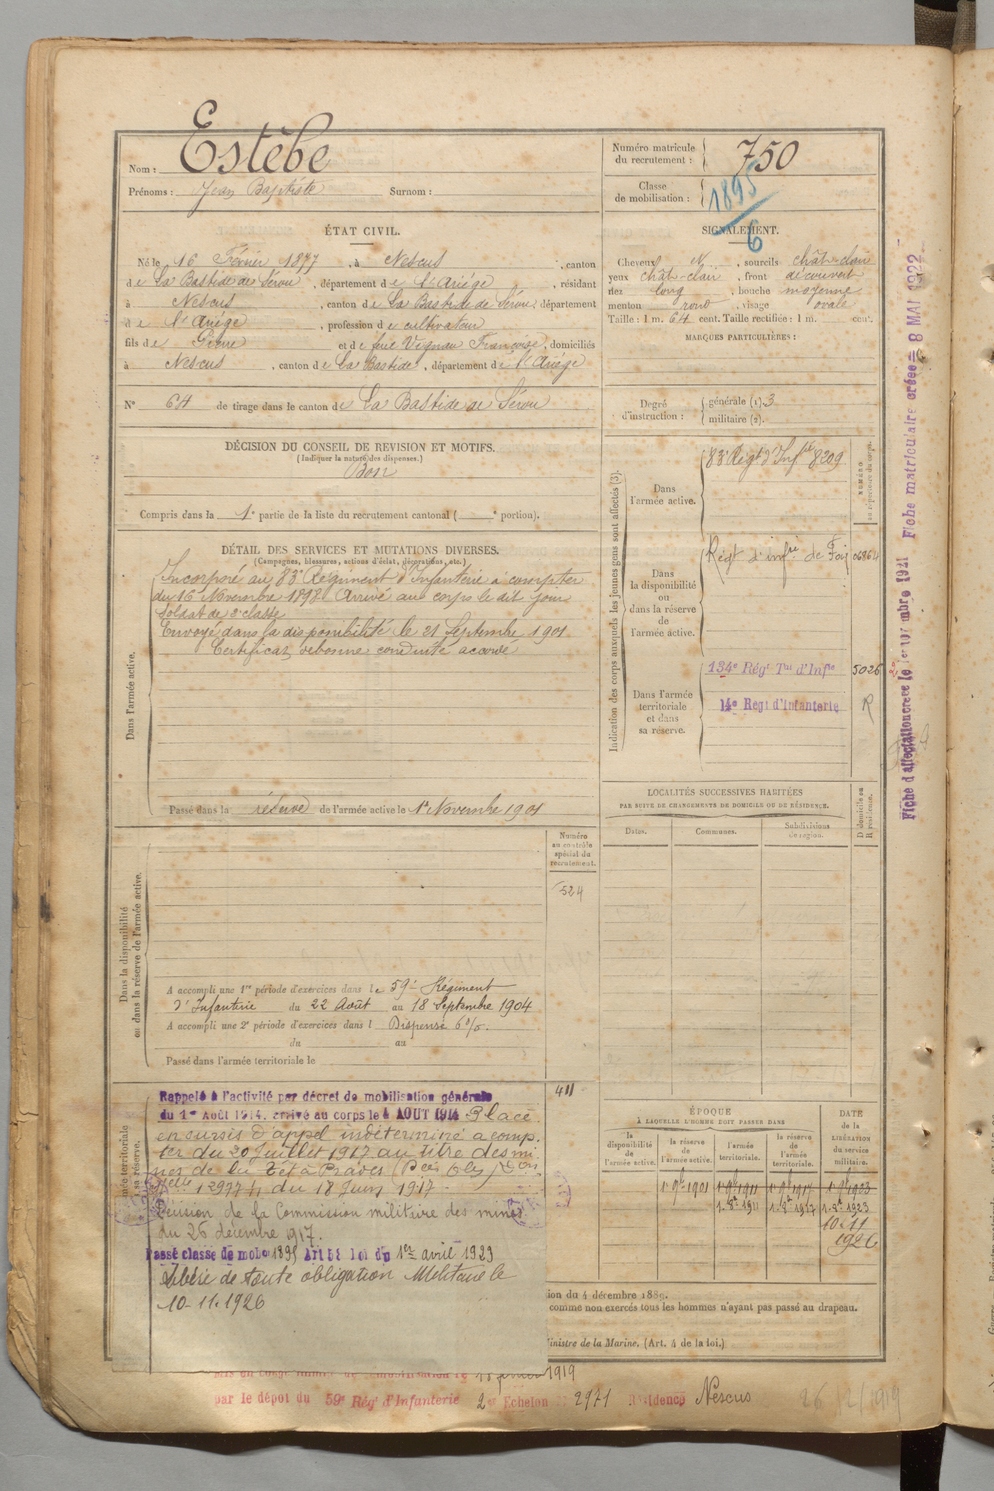 Nom : Estèbe
Prénoms : Jean Baptiste Surnom :
Numéro matricule
du recrutement : 750
Classe
de mobilisation : 1895
6
ÉTAT CIVIL.
Né le 16 Février 1877, à Nescus, canton
de La Bastide de Sérou, département de l'Ariége, résidant
à Nescus, canton de La Bastide de Sérou, département
de l'Ariége, profession de cultivateur
fils de Pierre et de feue Vignau Françoise, domiciliés
à Nescus, canton de La Bastide, département de l'Ariége
N° 64 de tirage dans le canton de La Bastide de Sérou
SIGNALEMENT.
Cheveux N, sourcils chât-clair
yeux chât-clair, front découvert
nez long, bouche moyenne
menton rond, visage ovale
Taille : 1 m. 64 cent. Taille rectifiée : 1 m. cent.
MARQUES PARTICULIÈRES :
Degré
d'instruction :
générale (1). 3
militaire (2).
DÉCISION DU CONSEIL DE REVISION ET MOTIFS.
(Indiquer la nature des dispenses.)
Bon
Compris dans la 1e partie de la liste du recrutement cantonal ( e portion).
DÉTAIL DES SERVICES ET MUTATIONS DIVERSES.
(Campagnes, blessures, actions d'éclat, décorations, etc.)
Dans l'armée active.
Incorporé au 83e Régiment d'Infanterie à compter
du 16 Novembre 1898. Arrivé au corps le dit jour
Soldat de 2e classe
Envoyé dans la disponibilité le 21 Septembre 1901
Certificat de bonne conduite accordé
Passé dans la réserve de l'armée active le 1er Novembre 1901
Indication des corps auxquels les jeunes gens sont affectés (3).
NUMÉRO
au répertoire du corps.
Dans
l'armée active.
83e Régt d'Infie 8209
Dans
la disponibilité
ou
dans la réserve
de
l'armée active.
Régt d'infie de Foix 06864
Dans l'armée
territoriale
et dans
sa réserve.
134e Régt Tal d'Infie 5026
14e Régt d'Infanterie R
LOCALITÉS SUCCESSIVES HABITÉES
PAR SUITE DE CHANGEMENTS DE DOMICILE OU DE RÉSIDENCE.
Dates. Communes. Subdivisions
de région.
D domicile ou
R résidence.
Numéro
au contrôle
spécial du
recrutement.
524
Dans la disponibilité
ou dans la réserve de l'armée active.
A accompli une 1re période d'exercices dans le 59e Régiment
d'Infanterie du 22 Août au 18 Septembre 1904
A accompli une 2e période d'exercices dans l Dispensé 6 %.
du au
Passé dans l'armée territoriale le
411
Rappelé à l'activité par décret de mobilisation générale
du 1er Août 1914. arrivé au corps le 4 AOUT 1914 Placé
en sursis d'appel indéterminé à comp-
ter du 20 Juillet 1917 au titre des mi-
nes de la
du 18 Juin 1917.
Décision de la Commission militaire des mines
du 26 décembre 1917.
Passé classe de mob 1895 Art 58 loi du 1er avril 1923
Libéré de toute obligation Militaire le
10-11-1926
ÉPOQUE
À LAQUELLE L'HOMME DOIT PASSER DANS
la
disponibilité
de
l'armée active.
la réserve
de
l'armée active.
l'armée
territoriale.
la réserve
de
l'armée
territoriale.
DATE
de la
LIBÉRATION
du
service
militaire.
1er 9bre 1901 1er 9bre 1911 1er 9bre 1917 1er 9bre 1923
1-8e 1911 1-8e 1917 1-8e 1923
10-11
1926
ion du 4 décembre 1889.
comme non exercés tous les hommes n'ayant pas passé au drapeau.
Ministre de la Marine. (Art. 4 de la loi.)
1919
par le dépôt du 59e Rég' d'Infanterie 2e Echelon N° 2971 Residence Nescus
26/12/1919
Fiche d'affectation créée le 1er septembre 1921 Fiche matriculaire créée = 8 MAI 1922